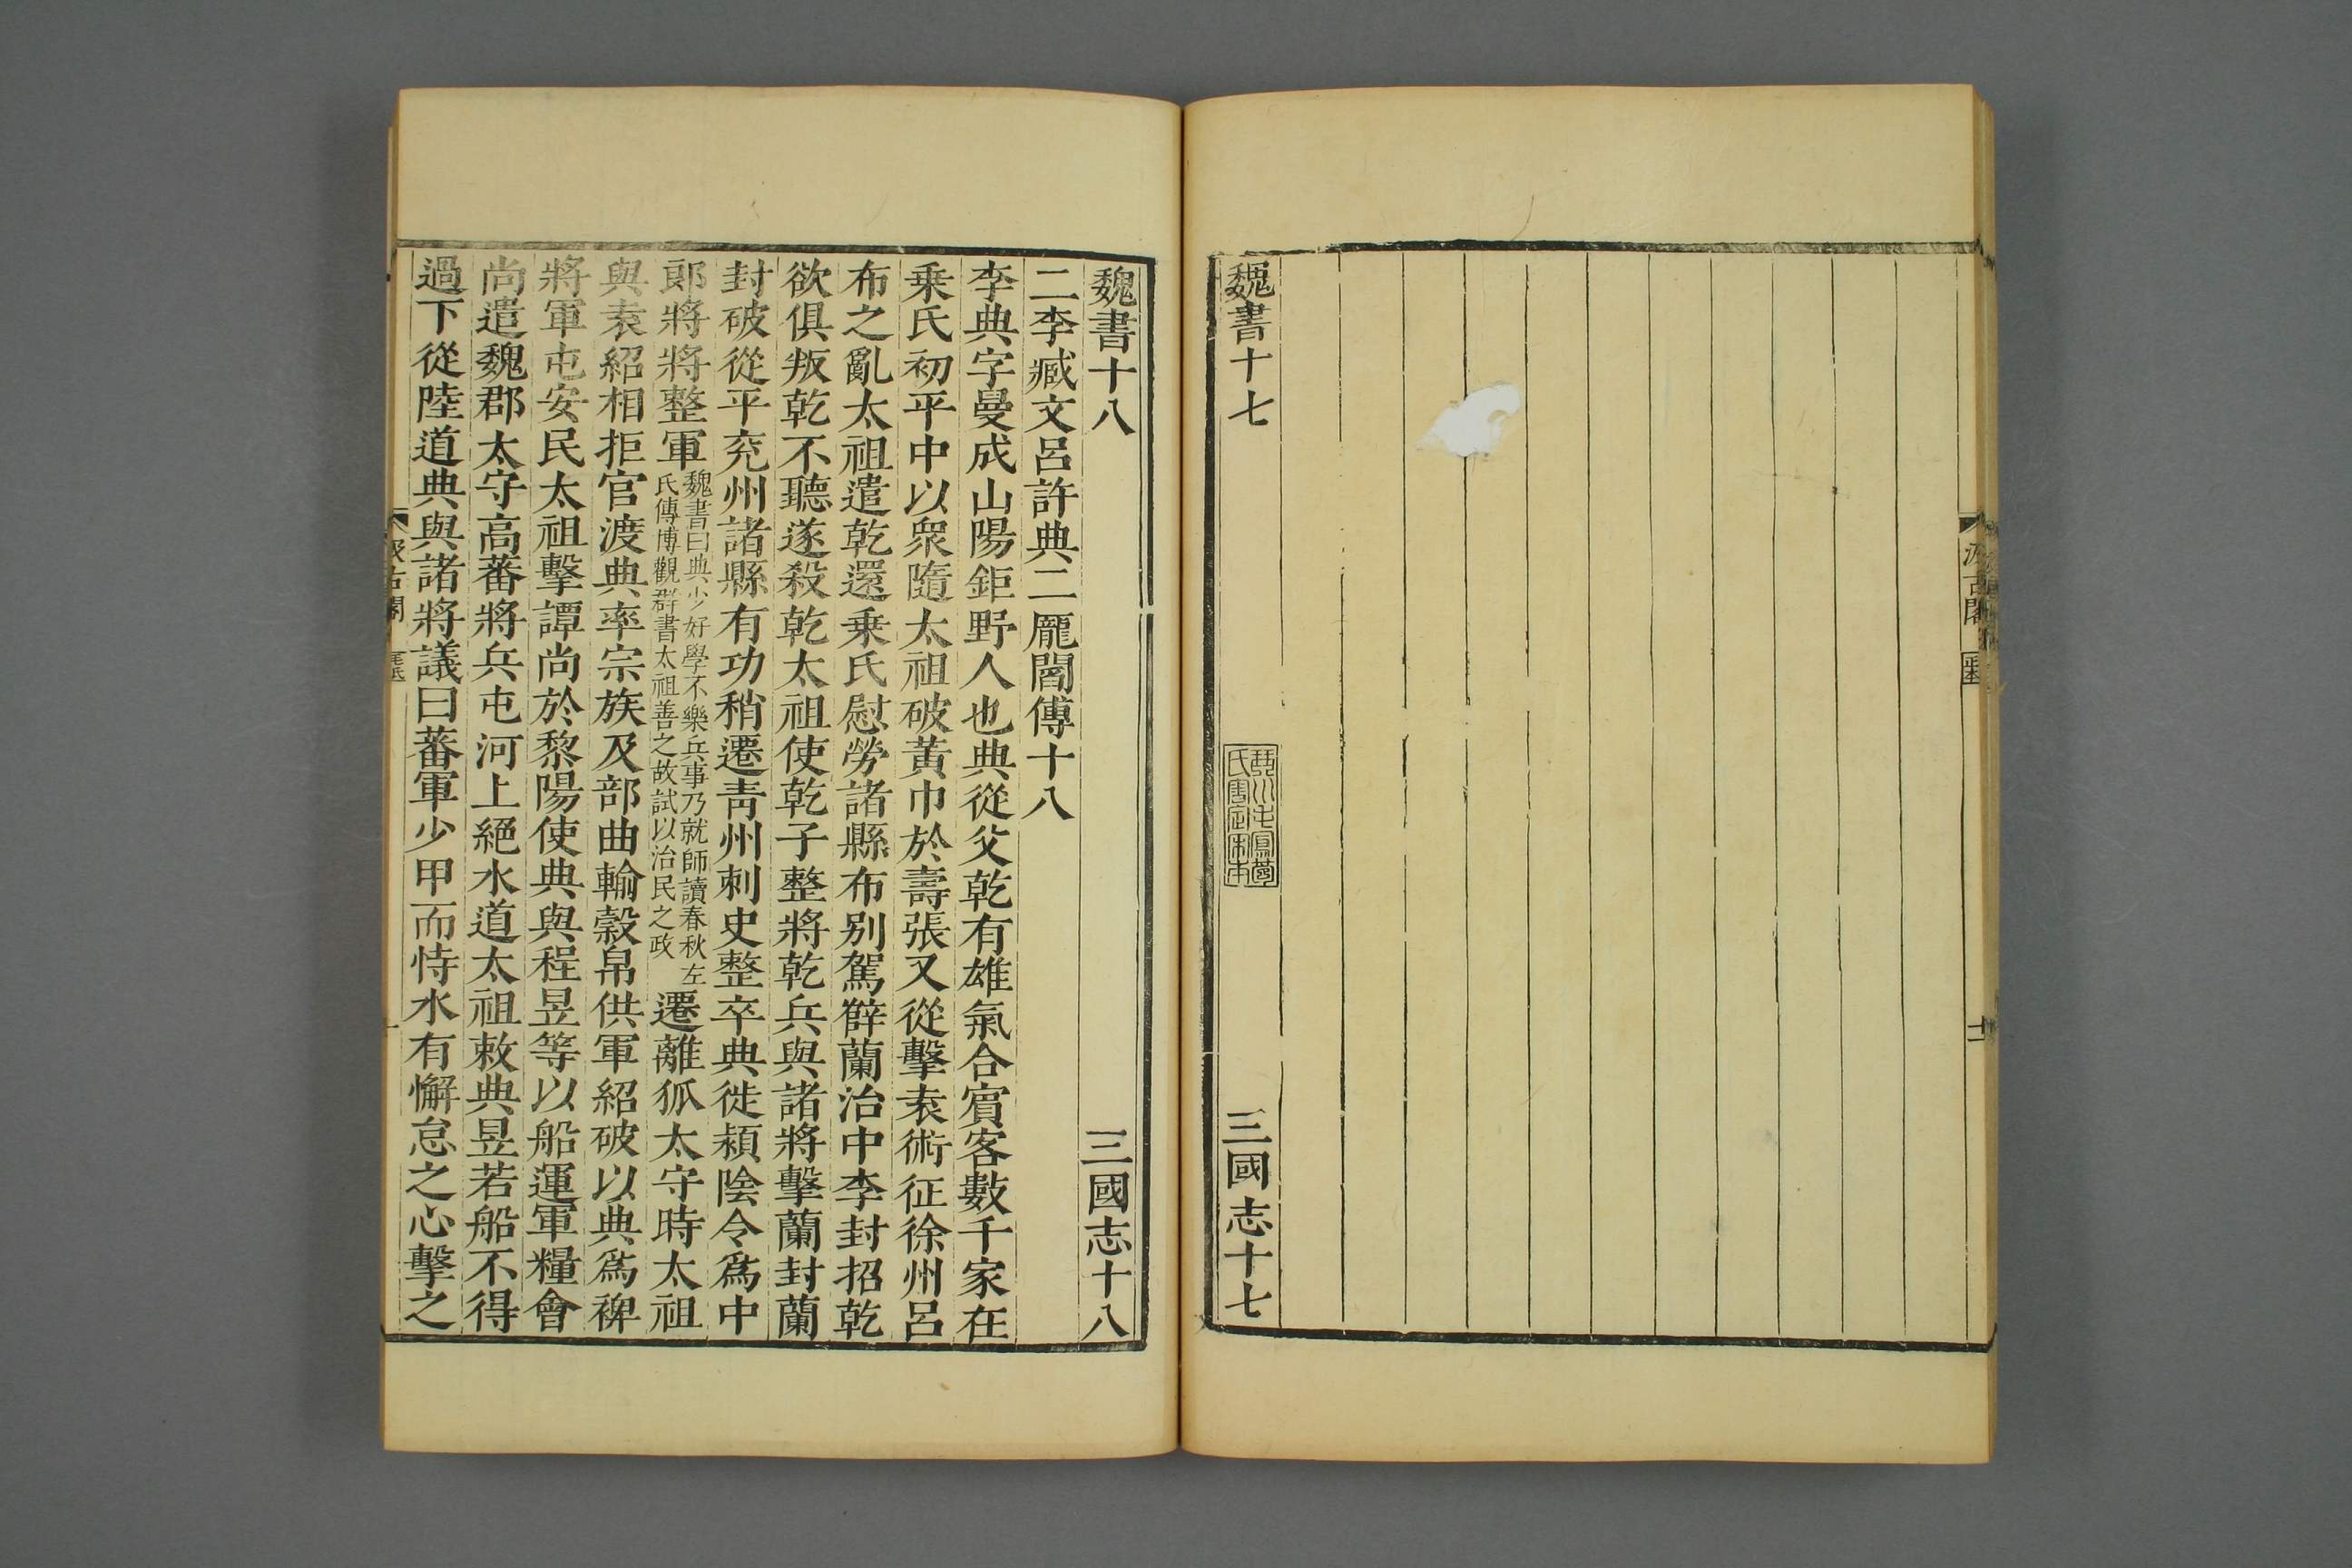 魏書十七
三國志十七
汲古閣
魏書十八
三國志十八
二李臧文呂許典二龐閻傳十八
李典字曼成山陽鉅野人也典從父乾有雄氣合賓客數千家在
乗氏初平中以衆隨太祖破黃巾於壽張又從擊袁術征徐州呂
布之亂太祖遣乾還乗氏慰勞諸縣布别駕薛蘭治中李封招乾
欲俱叛乾不聽遂殺乾太祖使乾子整將乾兵與諸將擊蘭封蘭
封破從平兖州諸縣有功稍遷靑州刺史整卒典徙潁陰令爲中
郞將將整軍
魏書曰典少好學不樂兵事乃就師讀春秋左
氏傳博觀群書太祖善之故試以治民之政
遷離狐太守時太祖
與袁紹相拒官渡典率宗族及部曲輸穀帛供軍紹破以典爲裨
將軍屯安民太祖擊譚尚於黎陽使典與程昱等以船運軍糧會
尚遣魏郡太守高蕃將兵屯河上絕水道太祖敕典昱若船不得
過下從陸道典與諸將議曰蕃軍少甲而恃水有懈怠之心擊之